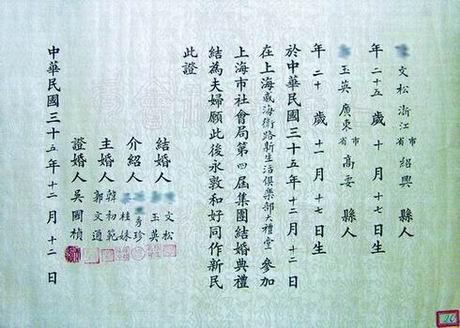 文松 浙江省市 紹興 縣人
年 二十五 歲 十 月 十七 日生
玉英 廣東省市 高要 縣人
年 二十 歲 十一 月 十七 日生
於中華民國三十五年十二月十二日
在上海威海衛路新生活俱樂部大禮堂 參加
上海市社會局第四屆集團結婚典禮
結為夫婦願此後永敦和好同作新民
此證
結婚人 文松 玉英
介紹人 秀珍 桂妹
主婚人 韓初範 郭文通
證婚人 吳國楨
中華民國三十五年十二月十二日